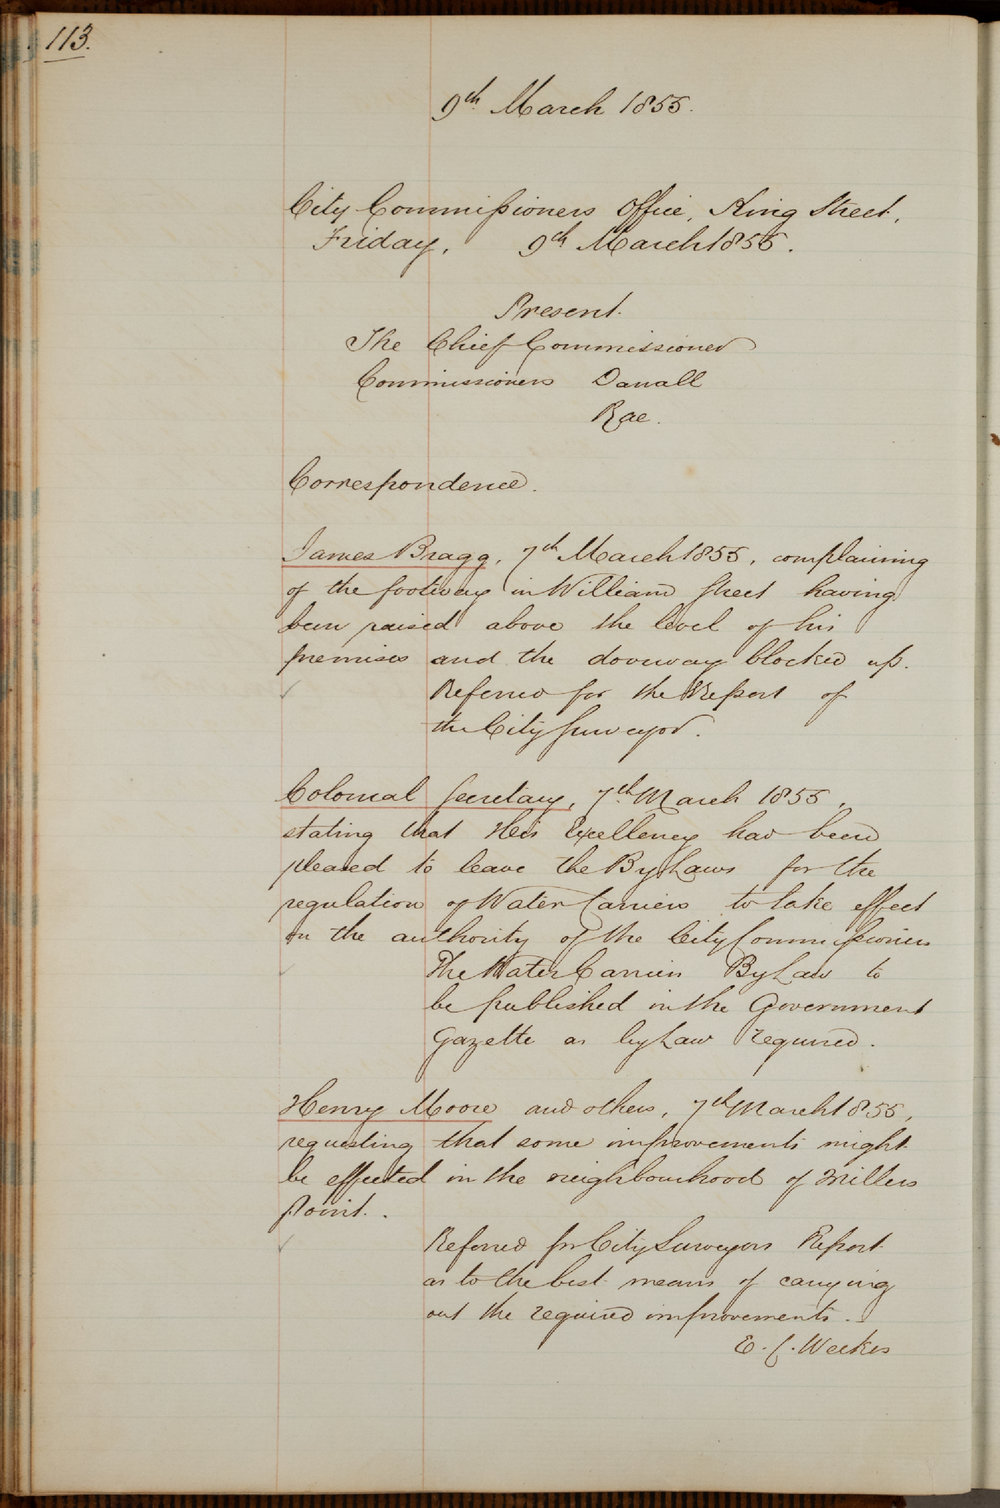 113.
9th March 1855.
City Commissioners Office, King Street,
Friday, 9th March 1855.
Present.
The Chief Commissioner
Commissioners Darvall
Rae.
Correspondence.
James Bragg, 7th March 1855, complaining
of the footway in William Street having
been raised above the level of his
premises and the doorway blocked up.
Referred for the Report of
the City Surveyor.
Colonial Secretary, 7th March 1855,
stating that His Excellency had been
pleased to leave the By Laws for the
regulation of Water Carriers to take effect
on the authority of the City Commissioners
The Water Carriers By Law to
be published in the Government
Gazette as by Law required.
Henry Moore and others, 7th March 1855,
requesting that some improvements might
be effected in the neighbourhood of Millers
Point.
Referred for City Surveyors Report
as to the best means of carrying
out the required improvements.
E. C. Weekes